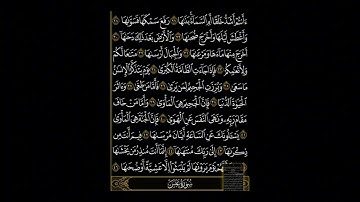 ءَأَنتُمْ أَشَدُّ خَلْقًا أَمِ ٱلسَّمَآءُ بَنَىٰهَا ۝ رَفَعَ سَمْكَهَا فَسَوَّىٰهَا ۝
وَأَغْطَشَ لَيْلَهَا وَأَخْرَجَ ضُحَىٰهَا ۝ وَٱلْأَرْضَ بَعْدَ ذَٰلِكَ دَحَىٰهَآ ۝
أَخْرَجَ مِنْهَا مَآءَهَا وَمَرْعَىٰهَا ۝ وَٱلْجِبَالَ أَرْسَىٰهَا ۝ مَتَٰعًا لَّكُمْ
وَلِأَنْعَٰمِكُمْ ۝ فَإِذَا جَآءَتِ ٱلطَّآمَّةُ ٱلْكُبْرَىٰ ۝ يَوْمَ يَتَذَكَّرُ ٱلْإِنسَٰنُ
مَا سَعَىٰ ۝ وَبُرِّزَتِ ٱلْجَحِيمُ لِمَن يَرَىٰ ۝ فَأَمَّا مَن طَغَىٰ ۝ وَءَاثَرَ
ٱلْحَيَوٰةَ ٱلدُّنْيَا ۝ فَإِنَّ ٱلْجَحِيمَ هِىَ ٱلْمَأْوَىٰ ۝ وَأَمَّا مَنْ خَافَ
مَقَامَ رَبِّهِۦ وَنَهَى ٱلنَّفْسَ عَنِ ٱلْهَوَىٰ ۝ فَإِنَّ ٱلْجَنَّةَ هِىَ ٱلْمَأْوَىٰ
۝ يَسْـَٔلُونَكَ عَنِ ٱلسَّاعَةِ أَيَّانَ مُرْسَىٰهَا ۝ فِيمَ أَنتَ مِن
ذِكْرَىٰهَآ ۝ إِلَىٰ رَبِّكَ مُنتَهَىٰهَآ ۝ إِنَّمَآ أَنتَ مُنذِرُ مَن يَخْشَىٰهَا
۝ كَأَنَّهُمْ يَوْمَ يَرَوْنَهَا لَمْ يَلْبَثُوٓا۟ إِلَّا عَشِيَّةً أَوْ ضُحَىٰهَا ۝